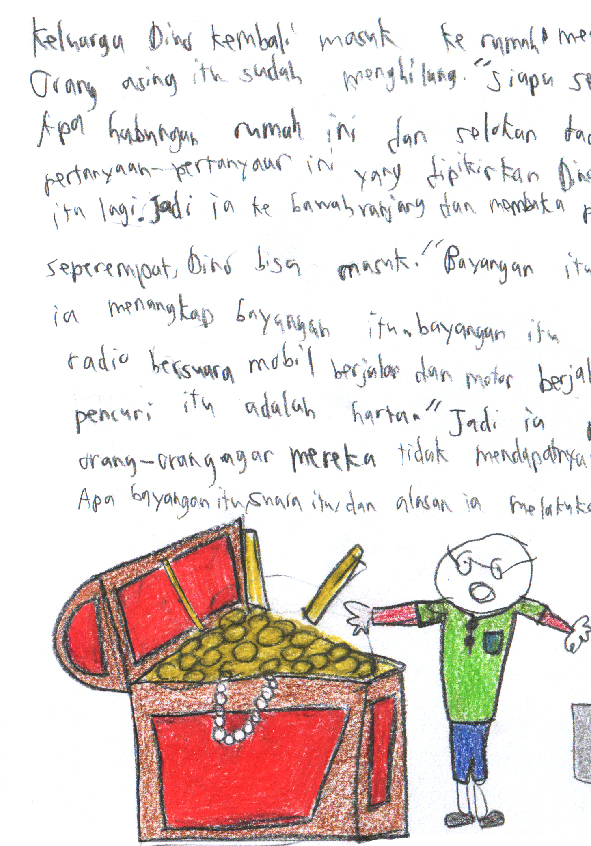 Keluarga Dino kembali masuk ke rumah
Orang asing itu sudah menghilang. "Siapa
Apa hubungan rumah ini dan selokan
pertanyaan-pertanyaan ini yang dipikirkan
itu lagi. Jadi ia ke bawah ranjang dan membuka
seperempat, Dino bisa masuk. "Bayangan itu
ia menangkap bayangan itu, bayangan itu
radio bersuara mobil berjalan dan motor
pencuri itu adalah harta." Jadi ia
orang-orang agar mereka tidak
Apa bayangan itu, suara itu, dan alasan ia